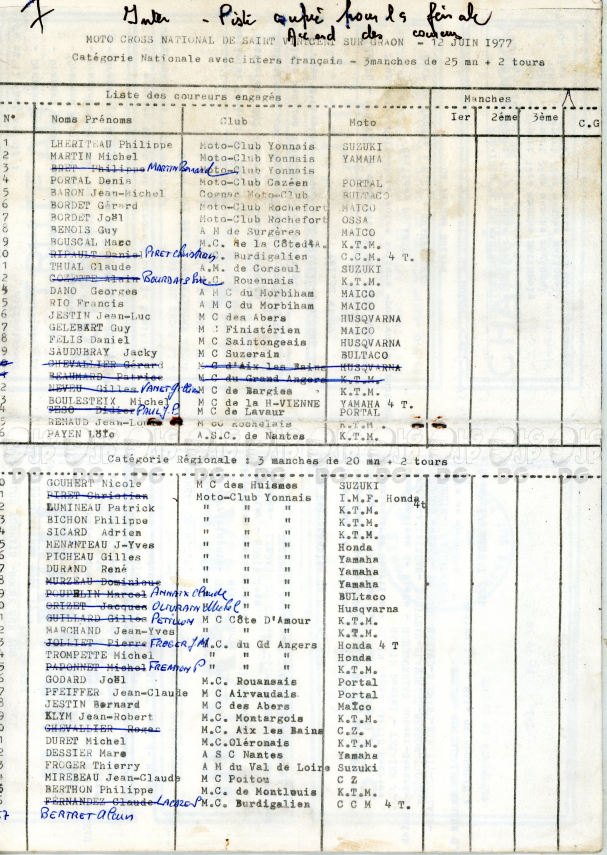 7 Inter - Piste coupée pour la finale
Accord des coureurs
MOTO CROSS NATIONAL DE SAINT VINCENT SUR GRAON - 12 JUIN 1977
Catégorie Nationale avec inters français - 3manches de 25 mn + 2 tours
Liste des coureurs engagés Manches
N° Noms Prénoms Club Moto Ier 2éme 3ème C.G
1 LHERITEAU Philippe Moto-Club Yonnais SUZUKI
2 MARTIN Michel Moto-Club Yonnais YAMAHA
3 BRET Philippe MARTIN Bernard Moto-Club Yonnais
4 PORTAL Denis Moto-Club Cazéen PORTAL
5 BARON Jean-Michel Cognac Moto-Club BULTACO
6 BORDET Gérard Moto-Club Rochefort MAICO
7 BORDET Joël Moto-Club Rochefort OSSA
8 BENOIS Guy A M de Surgères MAICO
9 BOUSCAL Marc M.C. de la Côted'A. K.T.M.
0 RIPAULT Daniel PIRET Christian Burdigalien C.C.M. 4 T.
1 THUAL Claude A.M. de Corseul SUZUKI
2 COZETTE Alain BOURDAIS Rouennais K.T.M.
4 DANO Georges A M C du Morbiham MAICO
5 RIO Francis A M C du Morbiham MAICO
6 JESTIN Jean-Luc M C des Abers HUSQVARNA
7 GELEBART Guy M C Finistérien MAICO
8 FELIS Daniel M C Saintongeais HUSQVARNA
9 SAUDUBRAY Jacky M C Suzerain BULTACO
CHEVALLIER Gérard M C d'Aix les Bains HUSQVARNA
BEAUMARD Patrice M C du Grand Angers K.T.M.
2 NEVEU Gilles M C de Bargies K.T.M.
3 BOULESTEIX Michel M C de la H-VIENNE YAMAHA 4 T.
4 PESO Didier PAUL J.P. M C de Lavaur PORTAL
5 RENAUD Jean-Louis M C Rochelais K.T.M.
6 PAYEN Loïc A.S.C. de Nantes K.T.M.
Catégorie Régionale : 3 manches de 20 mn + 2 tours
0 GOUHERT Nicole M C des Huismes SUZUKI
1 PIRET Christian Moto-Club Yonnais I.M.F. Honda 4t
2 LUMINEAU Patrick " " " K.T.M.
3 BICHON Philippe " " " K.T.M.
4 SICARD Adrien " " " K.T.M.
5 MENANTEAU J-Yves " " " Honda
6 PICHEAU Gilles " " " Yamaha
7 DURAND René " " " Yamaha
8 MURZEAU Dominique " " " Yamaha
9 POUPELIN Marcel ANNAIX Claude " " " BULtaco
0 ORIZET Jacques Michel " " " Husqvarna
1 GUILLARD Gilles PETILLON M C Côte D'Amour K.T.M.
2 MARCHAND Jean-Yves " " " K.T.M.
3 JOLLIET Pierre FROGER J M M.C. du Gd Angers Honda 4 T
4 TROMPETTE Michel " " " Honda
5 PAPONNET Michel FREMON P " " " K.T.M.
6 GODARD Joël M.C. Rouansais Portal
7 PFEIFFER Jean-Claude M C Airvaudais Portal
8 JESTIN Bernard M C des Abers Maïco
9 KLYM Jean-Robert M.C. Montargois K.T.M.
0 CHEVALLIER Roger M.C. Aix les Bains C.Z.
1 DURET Michel M.C.Oléronais K.T.M.
2 DESSIER Marc A S C Nantes Yamaha
3 FROGER Thierry A M du Val de Loire Suzuki
MIREBEAU Jean-Claude M C Poitou C Z
BERTHON Philippe M.C. de Montlouis K.T.M.
FERNANDEZ Claude M.C. Burdigalien C C M 4 T.
57 BERTRET Alain